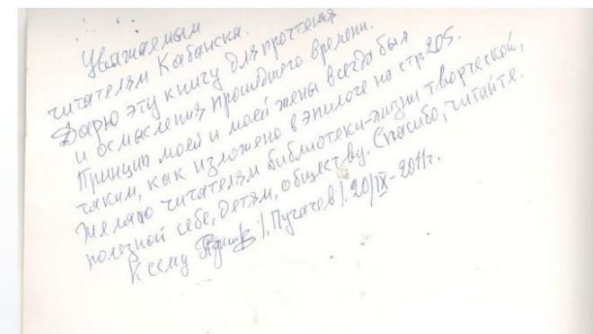 Уважаемым
читателям Кабанска.
Дарю эту книгу для прочтения
и осмысления прошедшего времени.
Принцип моей и моей жены всегда был
таким, как изложено в эпилоге на стр. 205.
Желаю читателям библиотеки-жизни творческой,
полезной себе, детям, обществу. Спасибо, читайте.
К сему /. Пугачев/. 20/IX-2011г.